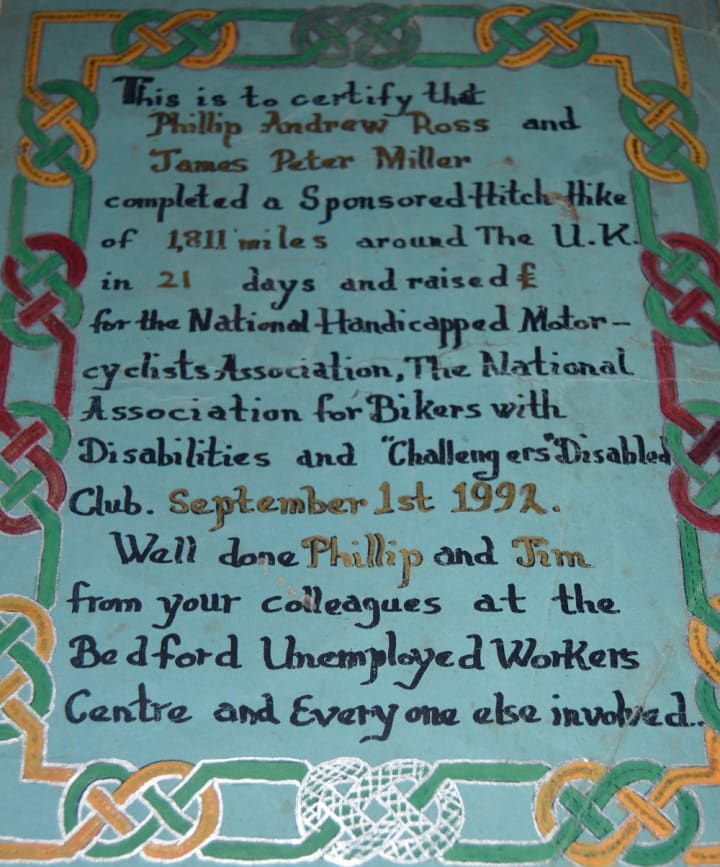 This is to certify that
Phillip Andrew Ross and
James Peter Miller
completed a Sponsored Hitch Hike
of 1,811 miles around The U.K.
in 21 days and raised £
for the National Handicapped Motor-
cyclists Association, The National
Association for Bikers with
Disabilities and "Challengers" Disabled
Club. September 1st 1992.
Well done Phillip and Jim
from your colleagues at the
Bedford Unemployed Workers
Centre and Everyone else involved..